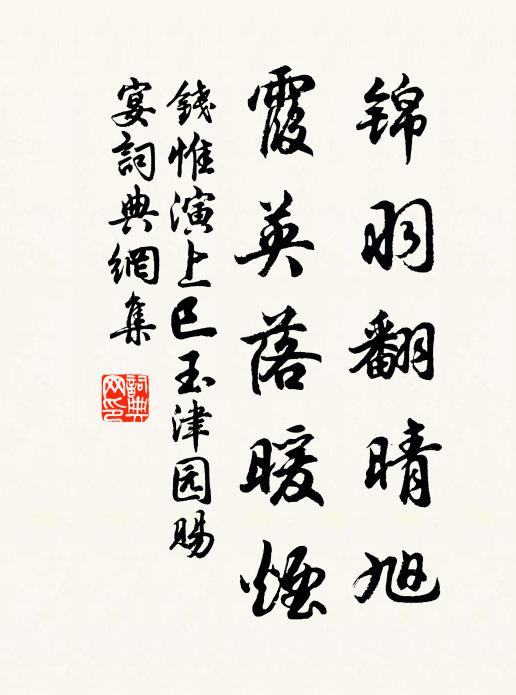 锦羽翻晴旭
霞英落暖煙
錢惟演上巳玉津园賜
宴詞典網集
詞典网印